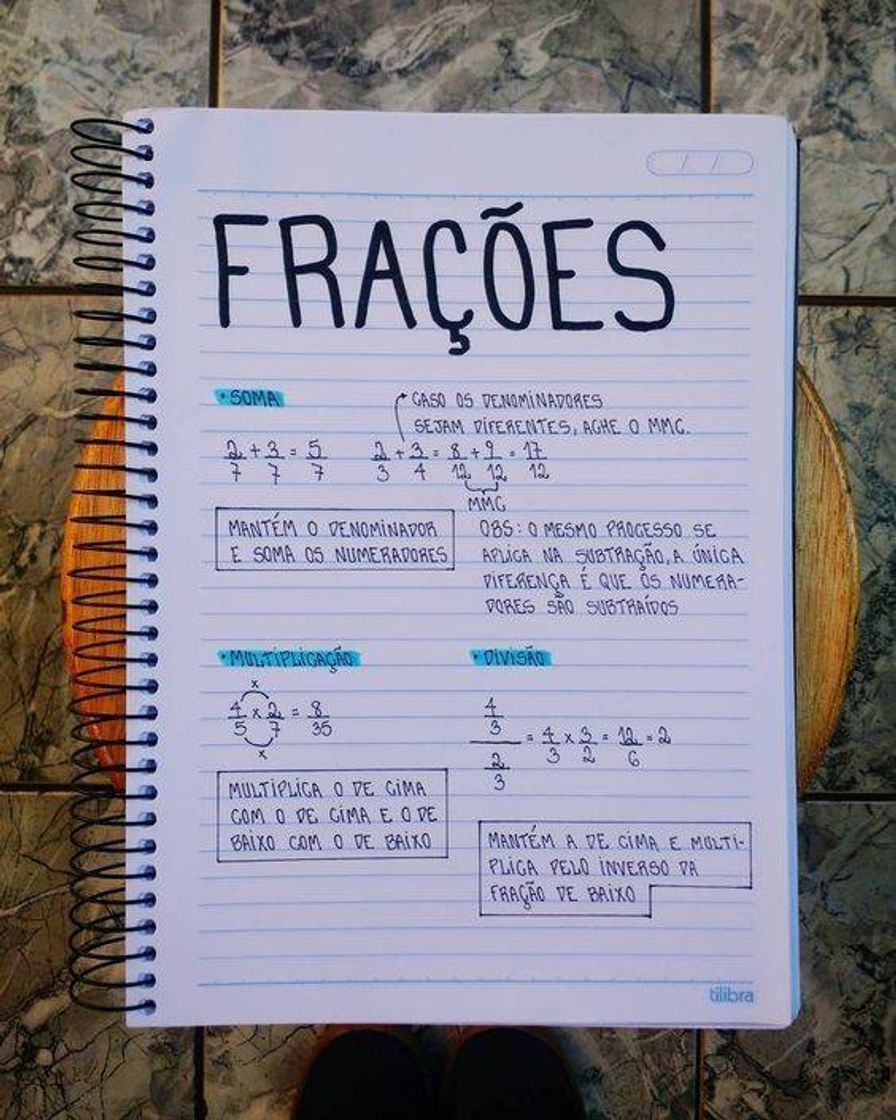 FRAÇÕES
• SOMA
CASO OS DENOMINADORES
SEJAM DIFERENTES, ACHE O MMC.
2/7 + 3/7 = 5/7
2/3 + 3/4 = 8/12 + 9/12 = 17/12
MMC
MANTÉM O DENOMINADOR
E SOMA OS NUMERADORES
OBS: O MESMO PROCESSO SE
APLICA NA SUBTRAÇÃO, A ÚNICA
DIFERENÇA É QUE OS NUMERA-
DORES SÃO SUBTRAÍDOS
• MULTIPLICAÇÃO
x
4/5 x 2/7 = 8/35
x
MULTIPLICA O DE CIMA
COM O DE CIMA E O DE
BAIXO COM O DE BAIXO
• DIVISÃO
4/3 / 2/3 = 4/3 x 3/2 = 12/6 = 2
MANTÉM A DE CIMA E MULTI-
PLICA PELO INVERSO DA
FRAÇÃO DE BAIXO
tilibra